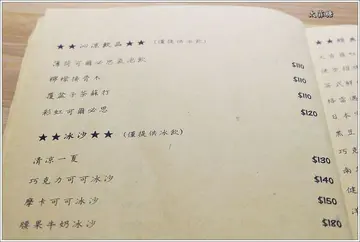 ★★沁涼飲品★★(僅提供冰飲)
薄荷可爾必思氣泡飲 $110
檸檬接骨木 $110
覆盆子茶蘇打 $110
彩虹可爾必思 $120
★★冰沙★★(僅提供冰飲)
清涼一夏 $130
巧克力可可冰沙 $140
摩卡可可冰沙 $150
腰果牛奶冰沙 $180